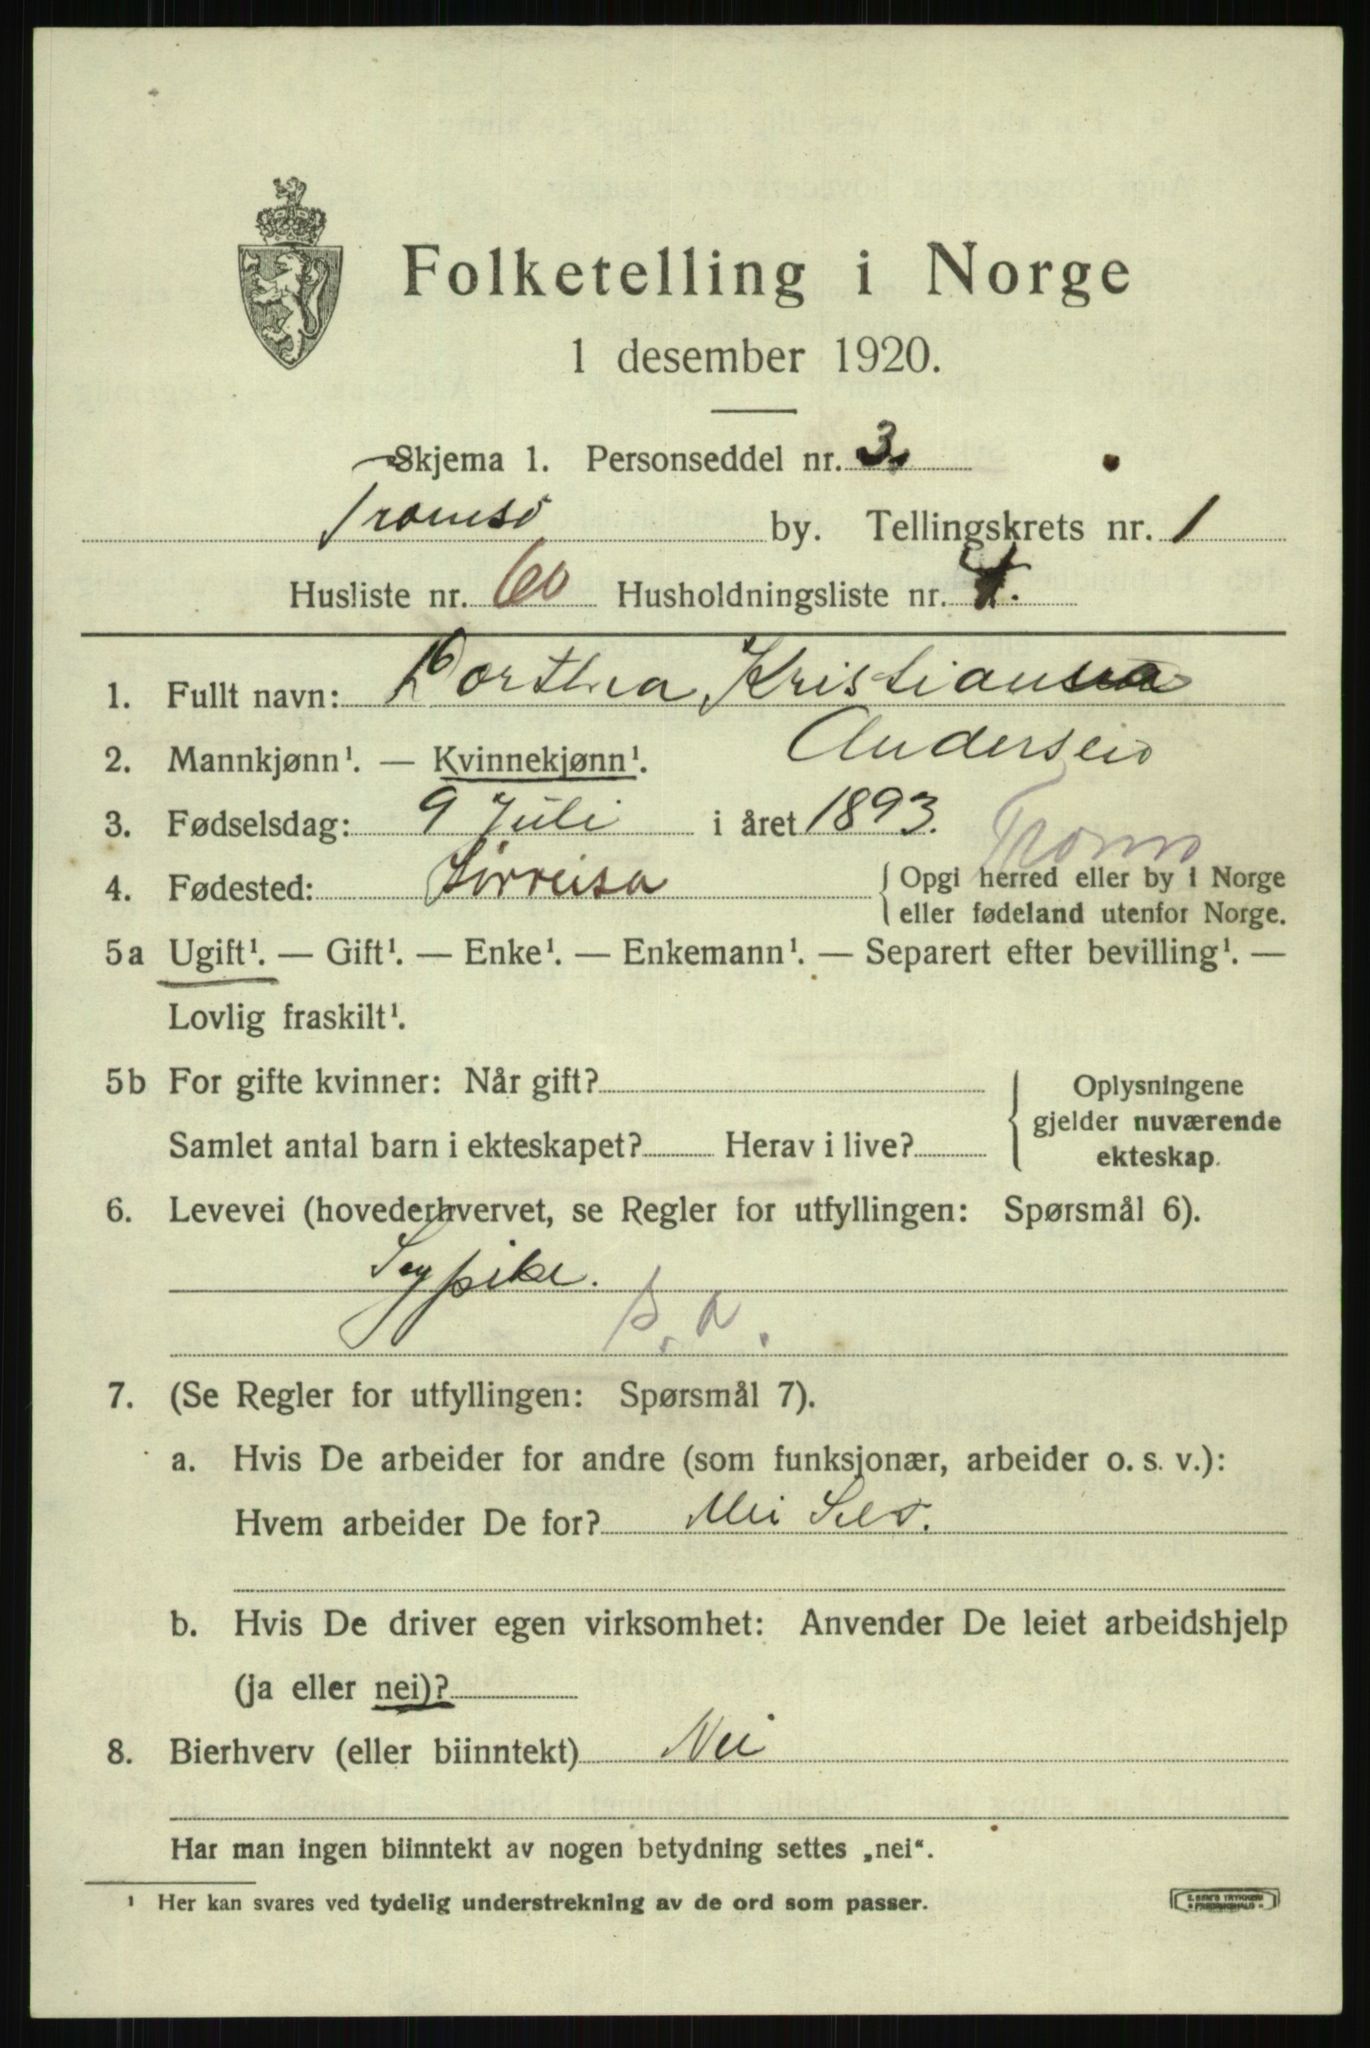 Folketelling i Norge
1 desember 1920.
Skjema 1. Personseddel nr. 3.
Tromsö by. Tellingskrets nr. 1
Husliste nr. 60 Husholdningsliste nr. 4.
1. Fullt navn: Dorthea Kristiansen
Andersen
2. Mannkjønn¹. — Kvinnekjønn¹.
3. Fødselsdag: 9 Juli i året 1893.
Troms
4. Fødested: Sørreisa { Opgi herred eller by i Norge
eller fødeland utenfor Norge.
5a Ugift¹. — Gift¹. — Enke¹. — Enkemann¹. — Separert efter bevilling¹. —
Lovlig fraskilt¹.
5b For gifte kvinner: Når gift? { Oplysningene
gjelder nuværende
Samlet antal barn i ekteskapet? Herav i live?
ekteskap.
6. Levevei (hovederhvervet, se Regler for utfyllingen: Spørsmål 6).
Sypike.
7. (Se Regler for utfyllingen: Spørsmål 7).
a. Hvis De arbeider for andre (som funksjonær, arbeider o. s. v.):
Hvem arbeider De for?
b. Hvis De driver egen virksomhet: Anvender De leiet arbeidshjelp
(ja eller nei)?
8. Bierhverv (eller biinntekt) Nei
Har man ingen biinntekt av nogen betydning settes „nei“.
¹ Her kan svares ved tydelig understrekning av de ord som passer.